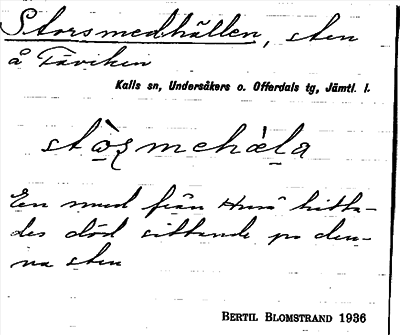 Storsmedhällen, sten
å Täviken
Kalls sn, Undersåkers o. Offerdals tg, Jämtl. l.
En smed från Huså hitta-
des död sittande på den-
na sten
BERTIL BLOMSTRAND 1936